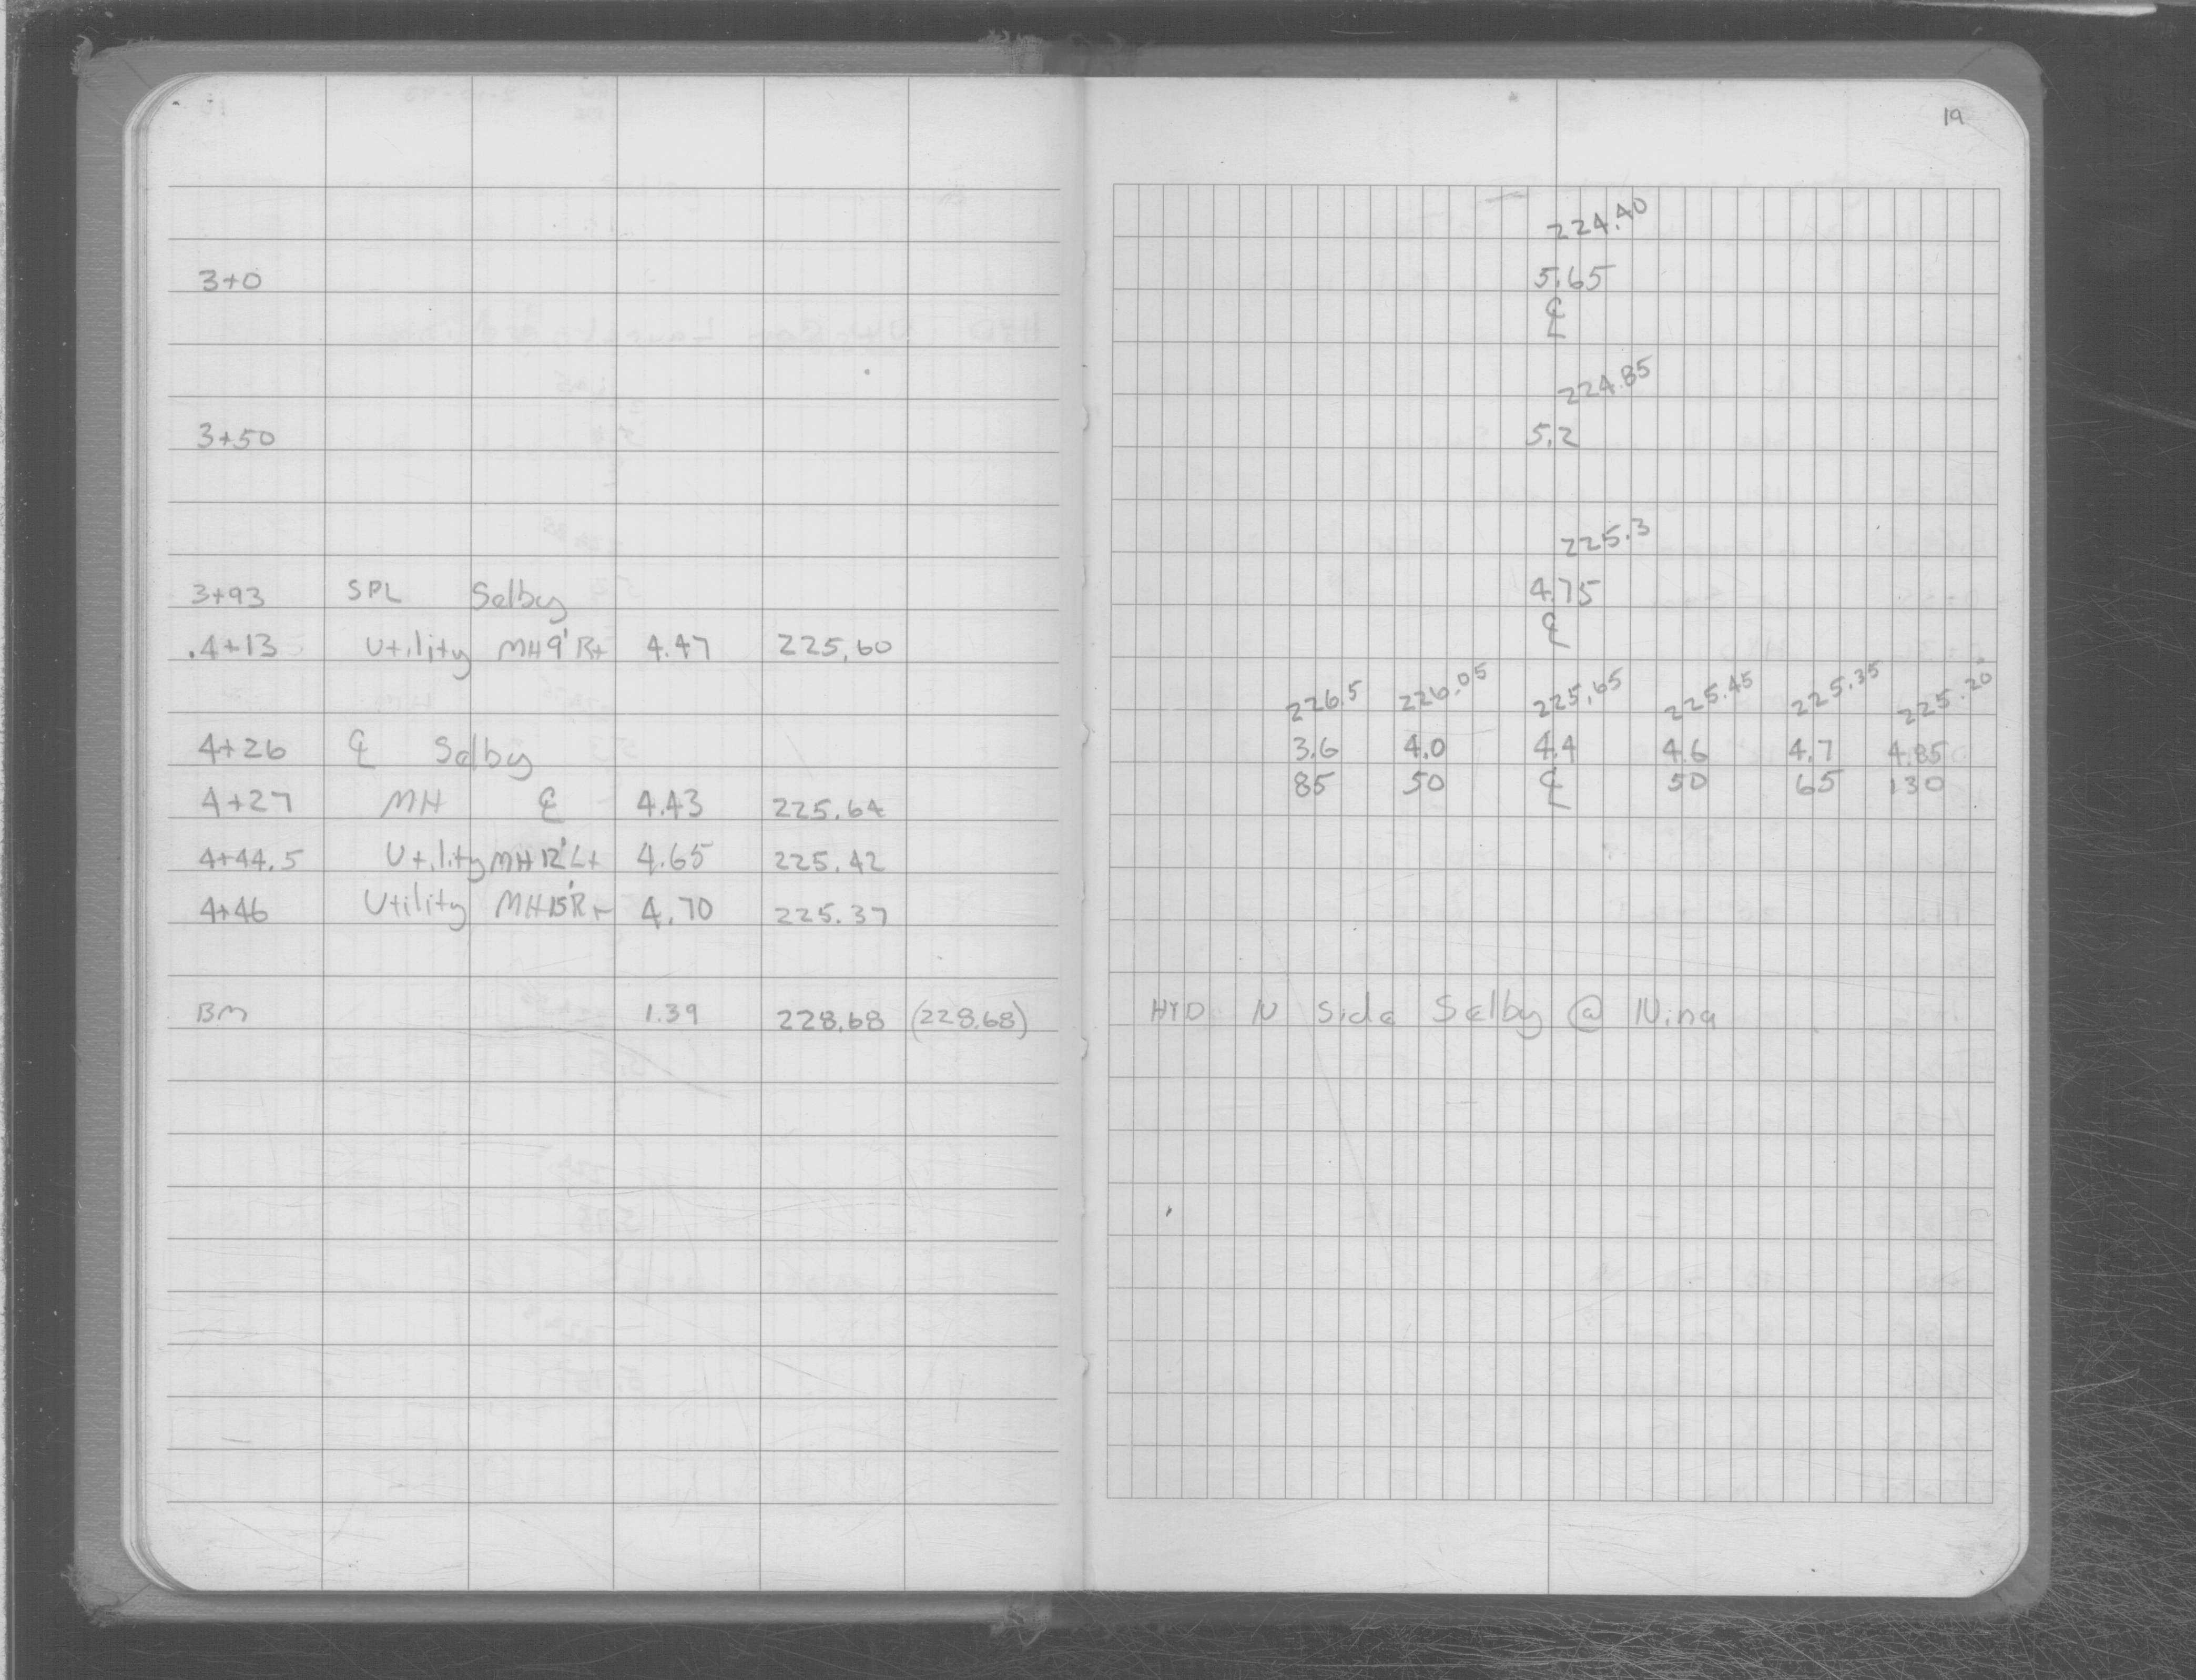 19
224.40
3+0 5.65
℄
224.85
3+50 5.2
225.3
3+93 SPL Selby 4.75
℄
.4+13 Utility MH 9' Rt 4.47 225.60
226.5 226.05 225.65 225.45 225.35 225.20
4+26 ℄ Selby 3.6 4.0 4.4 4.6 4.7 4.85
85 50 ℄ 50 65 130
4+27 MH ℄ 4.43 225.64
4+44.5 Utility MH 12' Lt 4.65 225.42
4+46 Utility MH 15' Rt 4.70 225.37
BM 1.39 228.68 (228.68) HYD N Side Selby @ Nina